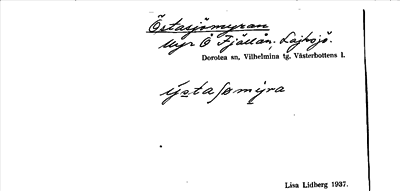 Östasjömyran
Myr Ö Fjällån, Lajksjö.
Dorotea sn, Vilhelmina tg. Västerbottens l.
ỳstaʃømỳra
Lisa Lidberg 1937.